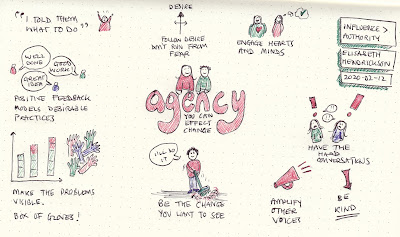 "I TOLD THEM
WHAT TO DO"
WELL
DONE
GOOD
WORK!
GREAT
IDEA
POSITIVE FEEDBACK
MODELS DESIRABLE
PRACTICES
MAKE THE PROBLEMS
VISIBLE.
BOX OF GLOVES!
DESIRE
FOLLOW DESIRE
DON'T RUN FROM
FEAR
agency
YOU CAN
EFFECT
CHANGE
I'LL DO
IT
BE THE CHANGE
YOU WANT TO SEE
ENGAGE HEARTS
AND MINDS
INFLUENCE >
AUTHORITY
ELISABETH
HENDRICKSON
2020-02-12
HAVE THE
HARD
CONVERSATIONS
AMPLIFY
OTHER
VOICES
BE
KIND